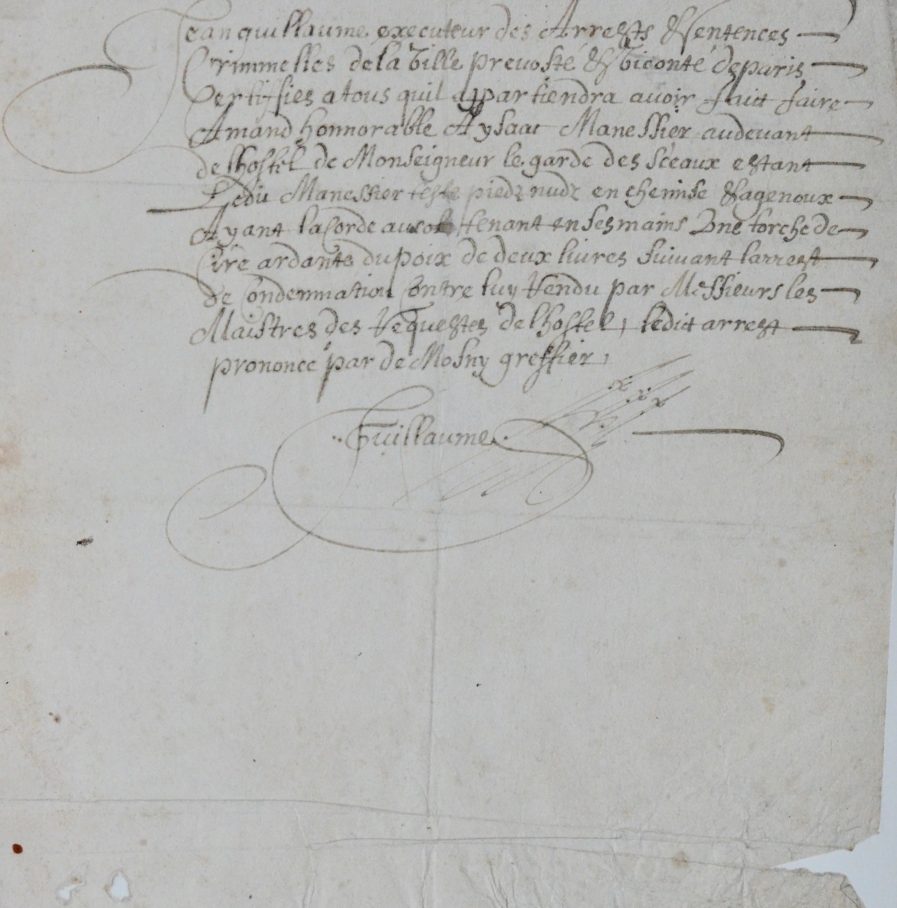 Jean guillaume executeur des Arrests & Sentences
Crimmelles de la Ville prevosté & Viconté de paris
Certiffies a tous quil appartiendra avoir faict faire
Amand honnorable A ysaac Manessier audevant
de lhostel de Monseigneur le garde des sceaux estant
Ledit Manessier teste piedz nudz en chemise & agenoux
Ayant la Corde au col tenant en ses mains Une torche de
Cire ardante du poix de deux livres suivant larrest
de Condemnation Contre luy Rendu par Messieurs les
Maistres des Requestes de lhostel, ledit arrest
prononcé par de Mosny greffier,
Guillaume